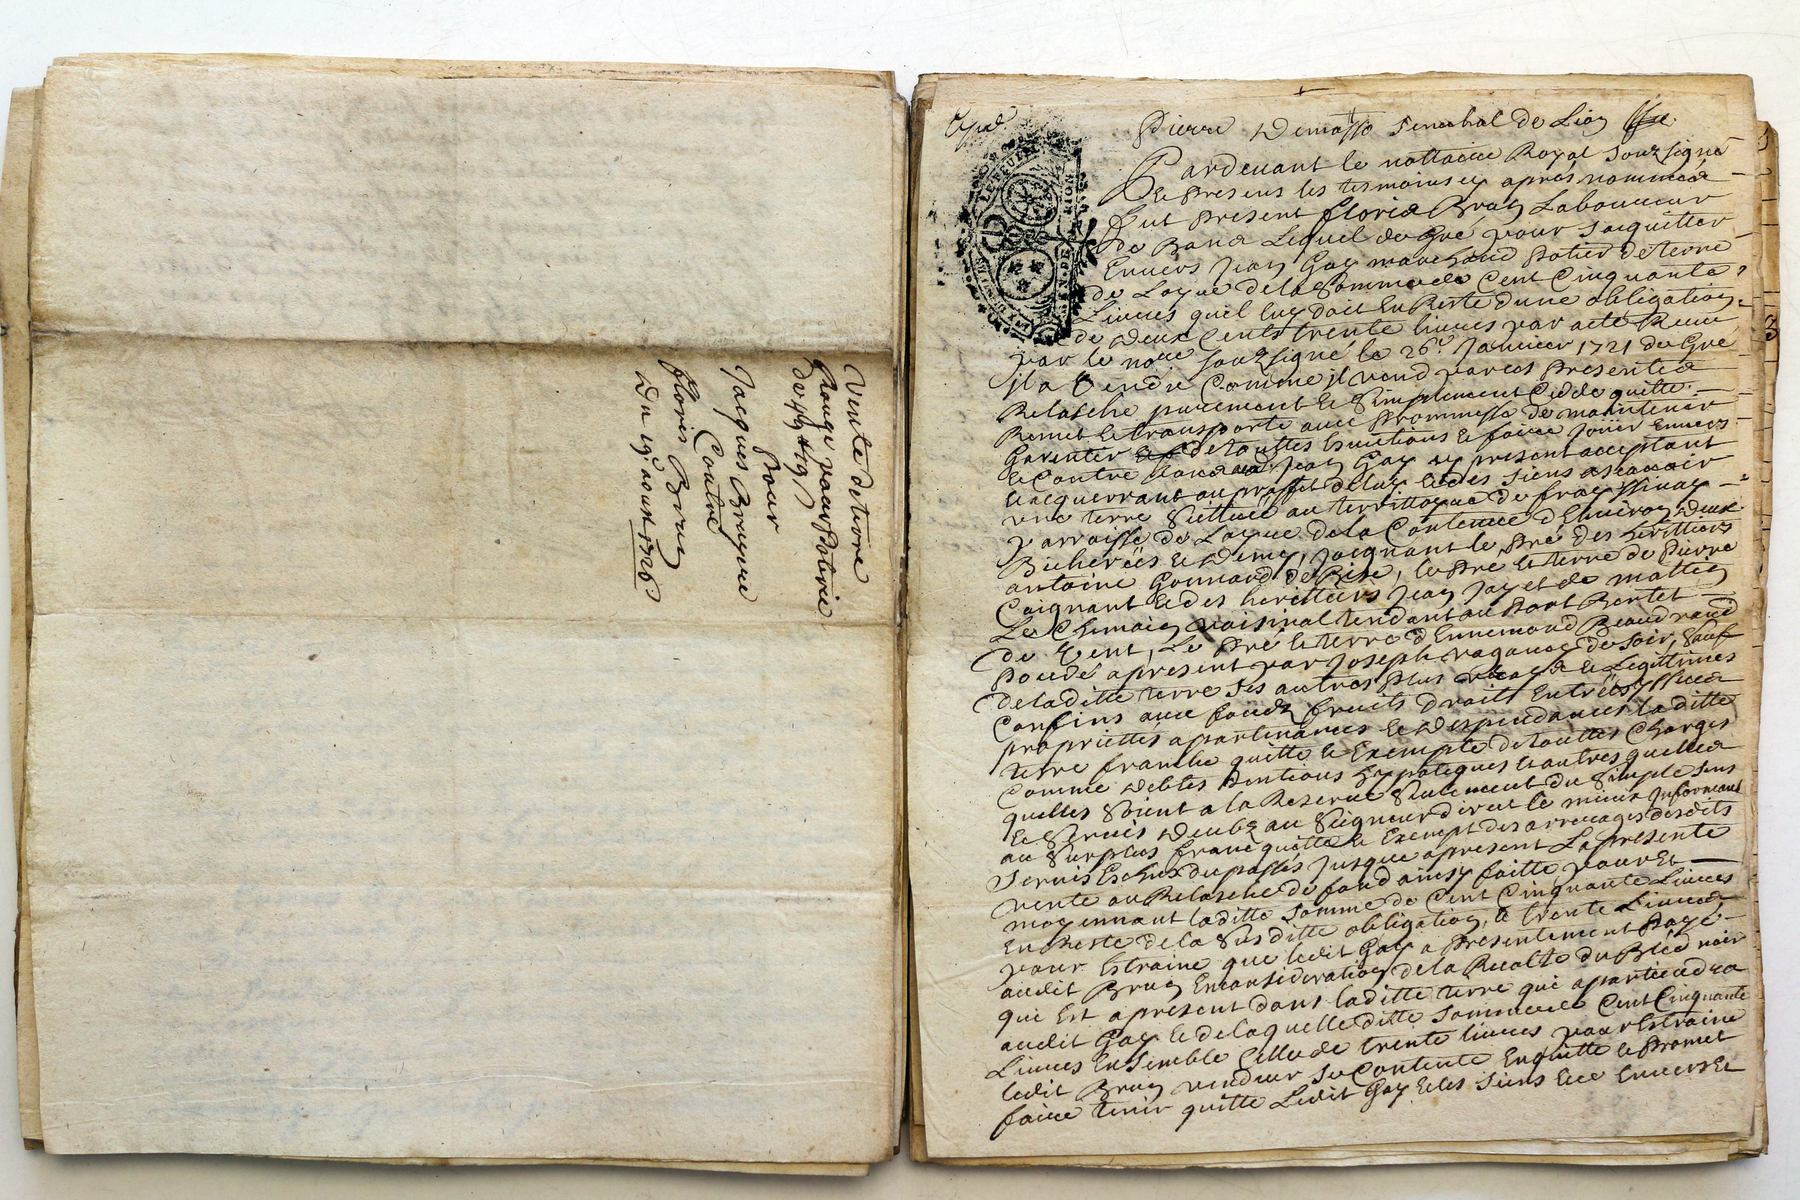 Vente de terre
pour
Jacques Bruyere
Contre
floris Brun
Du 19e aoust 1726
Pierre Demasso Senechal de Lion
Pardevant le nottaire Royal Souzsigné
Et Presens les tesmoins cy aprés nommés
fut present floris Brun Laboureur
de Lequel de Gré pour Saquitter
Envers Jean Gay marchand Potier de terre
de Layue de la Somme de Cent Cinquante
Livres quil luy doit En Reste dune obligation
de Deux Cents trente livres par acte Receu
par le nore Souzsigné le 26e Janvier 1721 de Gré
il a Vendu Comme il vend par ces presentes
Relasche purement Et Simplement Cedde quitte
Remet Et transporte avec Prommesse de maintenir
Garentir de touttes Evictions Et faire Joüir Envers
Et Contre Jean Gay cy present acceptant
Et acquerrant au proffit de luy Et des siens a scavoir
une terre Scittuée au territtoire de
parroisse de Layue de la Contenue dEnviron deux
Bicherées Et Demy, Joignant le Pré des heritiers
antoine Gonnard de Bise, le Pré Et terre de Pierre
Coignant Et des heritiers Jean Jay et de mattin
Le Chemin voisinal tendant au
de Vent, Le Pré Et terre dEnnemond Beaudrand
a present par Joseph de Soir, Sauf
de laditte terre Ses autres plus Et Legittimes
Confins avec fonds fruits Droits Entrées yssues
proprietes apartenances Et Despendances laditte
terre franche quitte Et Exempte de touttes Charges
Comme Debtes Pentions Et autres quelles
quelles Soient a la Reserve Seulement du Simple Sens
Et Servis Deubz au Seigneur direct le mieux Informant
au Surplus franc quitte Et Exempt des arrerages desdits
Servis Escheus du passés Jusque a present La presente
vente ou Relasche de fond ainsy faitte pour Et
moyennant laditte Somme de Cent Cinquante Livres
En Reste de la Susditte obligation, Et trente Livres
pour Estraine que ledit Gay a Presentement Payé
audit Brun En Consideration de la Recolte du Bled noir
qui Est a present dans laditte terre qui apartiendra
audit Gay Et de laquelle ditte Somme de Cent Cinquante
Livres Ensemble Celle de trente livres pour Estraine
ledit Brun vendeur Se Contente En quitte Et Promet
faire tenir quitte Ledit Gay Et les Siens Envers Et